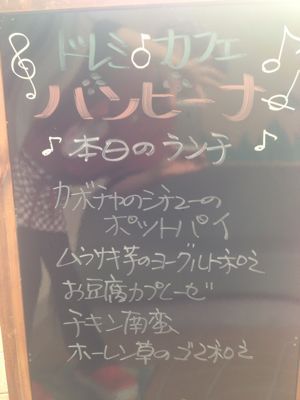 ドレミ♪カフェ
バンビーナ
♪本日のランチ♪
カボチャのシチューの
ポットパイ
ムラサキ芋のヨーグルト和え
お豆腐カプレーゼ
チキン南蛮
ホーレン草のゴマ和え